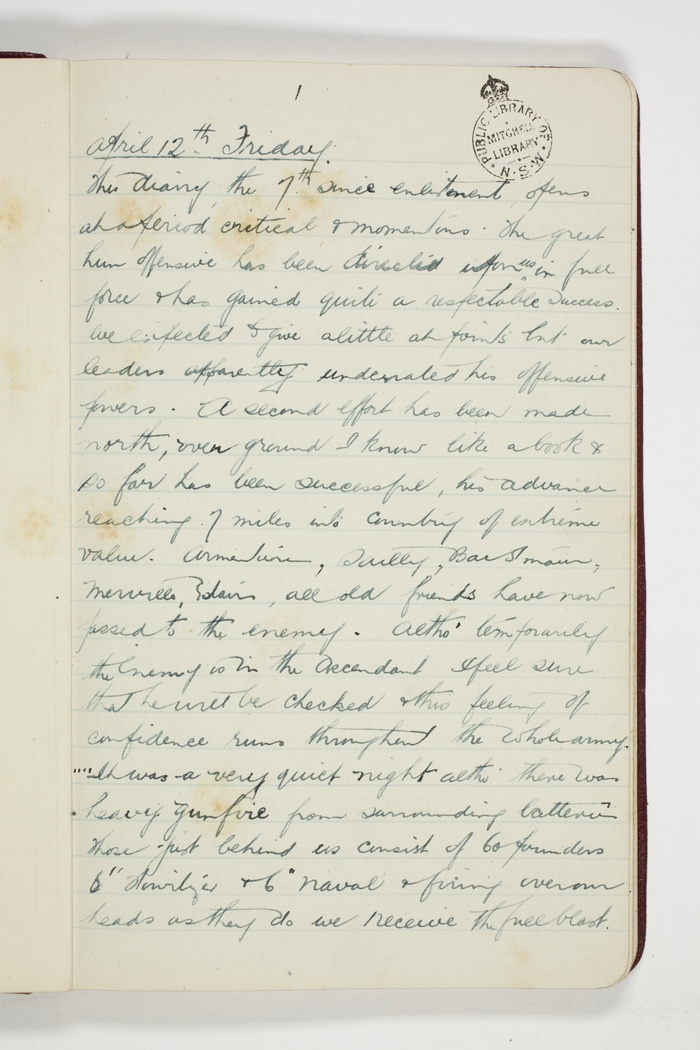 1
PUBLIC LIBRARY OF N.S.W
MITCHELL LIBRARY
April 12th Friday.
This diary, the 7th since enlistment, opens
at a period critical & momentous. The great
hun offensive has been directed upon us in full
force & has gained quite a respectable success.
We expected to give a little at points but our
leaders apparently underrated his offensive
powers. A second effort has been made
north, over ground I know like a book &
so far has been successful, his advance
reaching 7 miles into country of extreme
value. Armentieres, Sailly, Bac St maur,
Merville, Estairs, all old friends have now
passed to the enemy. Altho' temporarily
the Enemy is in the Ascendant I feel sure
that he will be checked & this feeling of
confidence runs throughout the whole army.
""It was a very quiet night altho there was
heavy gunfire from surrounding batteries
those just behind us consist of 60 pounders
6" Howitzer & 6" Naval & firing over our
heads as they do we receive the full blast.